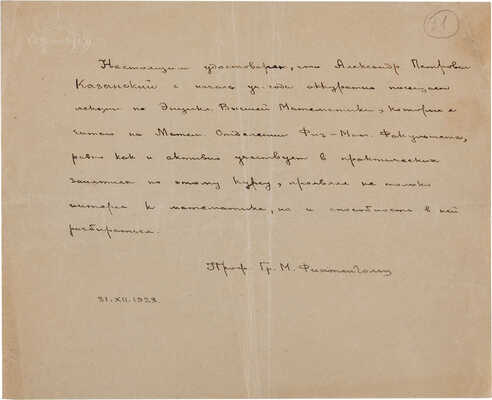 21
Настоящим удостоверяю, что Александр Петрович
Казанский с начала уч. года аккуратно посещает
лекции по Энцикл. Высшей Математики, которые я
читаю на Матем. Отделении Физ-Мат. Факультета,
равно как и активно участвует в практических
занятиях по этому курсу, проявляя не только
интерес к математике, но и способность в ней
разбираться.
Проф. Гр. М. Фихтенгольц
21.XII.1923